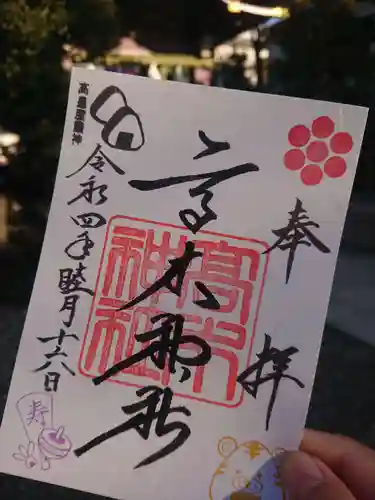 奉拝
高木神社
高木神社
令和四年睦月十六日
高皇産霊神
寿